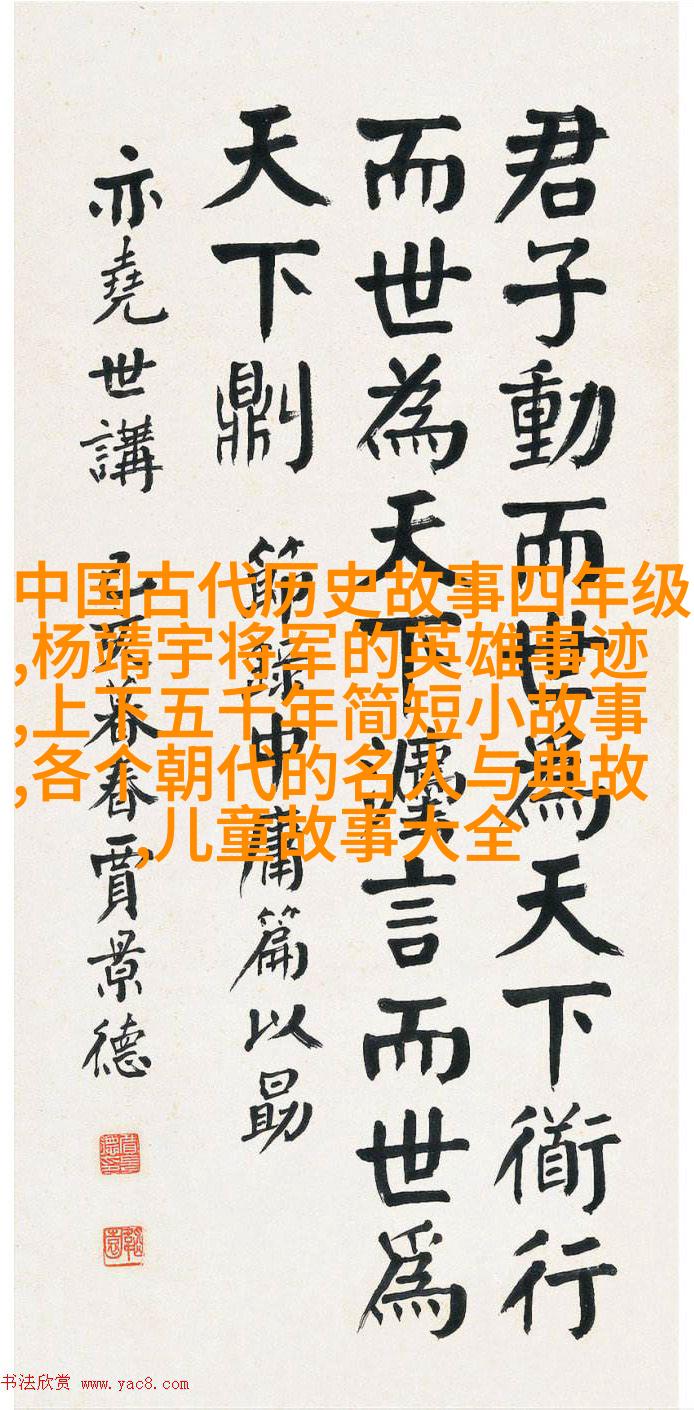 君子動而世為天下衜行
而世為天下灋言而世為
天下則 節錄中庸篇以勗
亦堯世講 己暮春賈景德
中国古代历史故事四年级
,杨靖宇将军的英雄事迹
,上下五千年简短小故事
,各个朝代的名人与典故
,儿童故事大全
书法欣赏 www.yac8.com